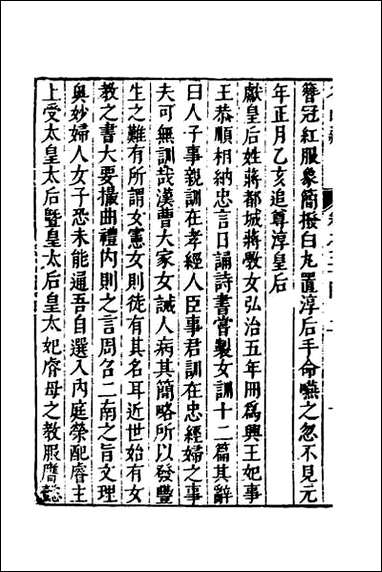 簪冠紅服象簡授白丸置淳后手命嚥之忽不見元
年正月乙亥追尊淳皇后
獻皇后姓蔣都城蔣斆女弘治五年冊爲興王妃事
王恭順相納忠言日誦詩書嘗製女訓十二篇其辭
曰人子事親訓在孝經人臣事君訓在忠經婦之事
夫可無訓哉漢曹大家女誡人病其簡略所以發豐
生之難有所謂女憲女則徒有其名耳近世始有女
教之書大要撮曲禮內則之言周召二南之旨文理
奥妙婦人女子悉未能通吾自選入內庭榮配睿主
上受太皇太后曁皇太后皇太妃睿母之教服膺